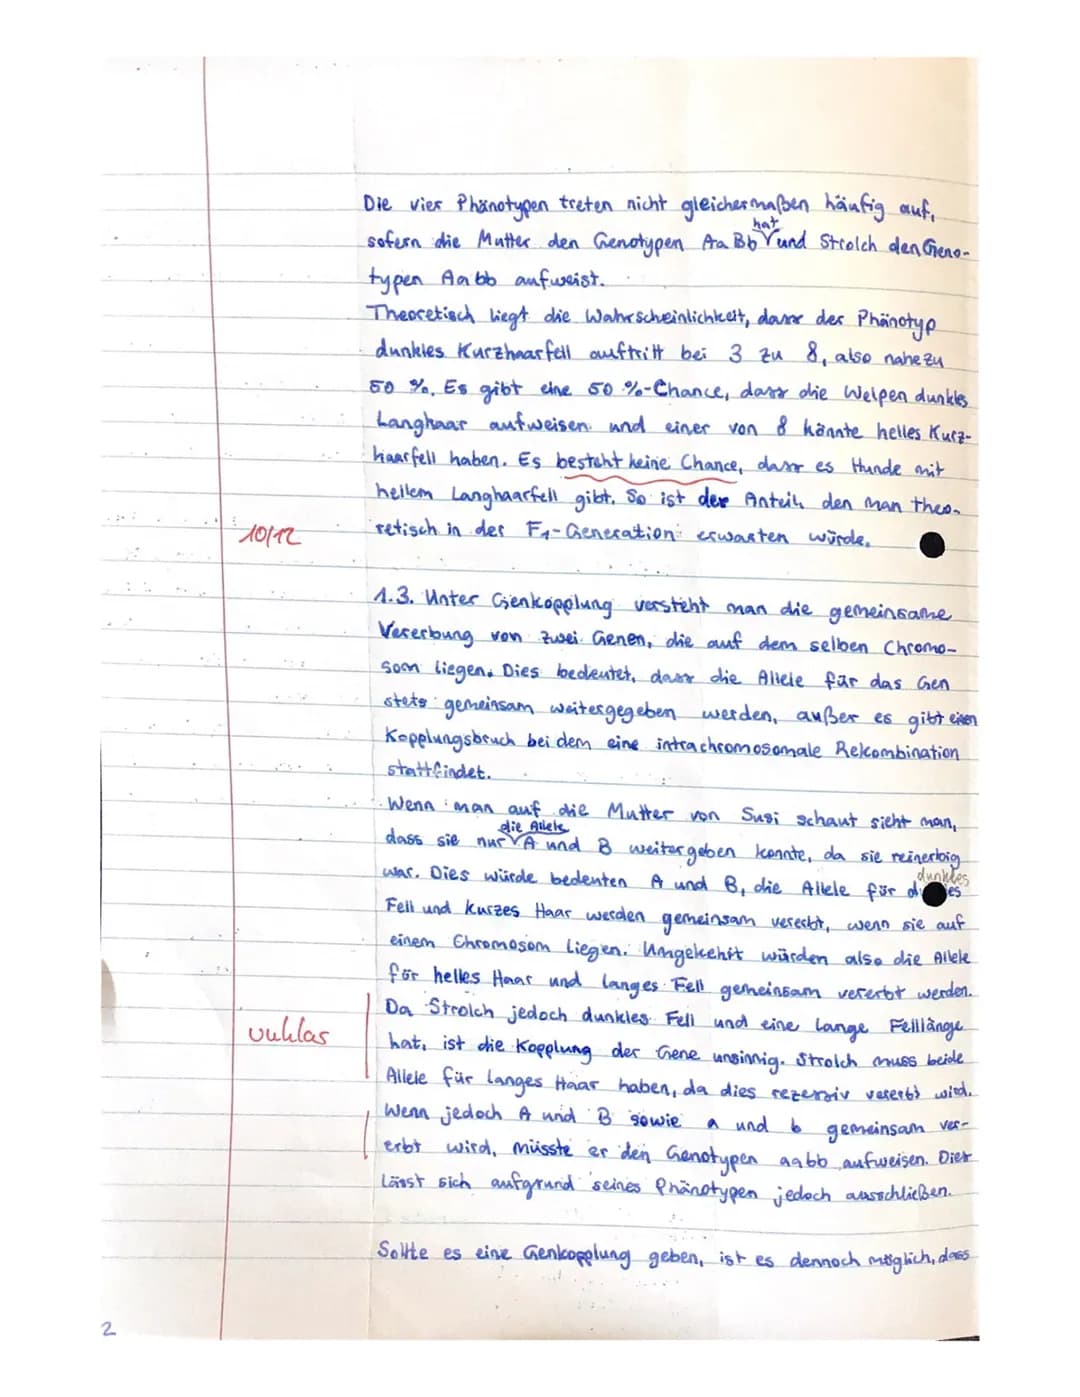 Die vier Phänotypen treten nicht gleichermaßen häufig auf,
hat
sofern die Mutter den Genotypen AaBb und Strolch den Geno-
typen Aabb aufweist.
Theoretisch liegt die Wahrscheinlichkeit, dass der Phänotyp
dunkles Kurzhaarfell auftritt bei 3 zu 8, also nahezu
50 %. Es gibt eine 50 %-Chance, dass die Welpen dunkles
Langhaar aufweisen und einer von 8 könnte helles Kurz-
haarfell haben. Es besteht keine Chance, dass es Hunde mit
hellem Langhaarfell gibt. So ist der Anteil, den man theo-
10/12
retisch in der F1-Generation erwarten würde.
1.3. Unter Genkopplung versteht man die gemeinsame
Vererbung von zwei Genen, die auf dem selben Chromo-
som liegen. Dies bedeutet, dass die Allele für das Gen
stets gemeinsam weitergegeben werden, außer es gibt einen
Kopplungsbruch bei dem eine intrachromosomale Rekombination
stattfindet.
Wenn man auf die Mutter von Susi schaut sieht man,
die Allele
dass sie nur A und B weitergeben konnte, da sie reinerbig
dunkles
war. Dies würde bedeuten A und B, die Allele für
Fell und kurzes Haar werden gemeinsam vererbt, wenn sie auf
einem Chromosom liegen. Umgekehrt würden also die Allele
für helles Haar und langes Fell gemeinsam vererbt werden.
Da Strolch jedoch dunkles Fell und eine lange Felllänge
unklar
hat, ist die Kopplung der Gene unsinnig. Strolch muss beide
Allele für langes Haar haben, da dies rezessiv vererbt wird.
Wenn jedoch A und B sowie a und b gemeinsam ver-
erbt wird, müsste er den Genotypen aabb aufweisen. Dies
lässt sich aufgrund seines Phänotypen jedoch ausschließen.
Sollte es eine Genkopplung geben, ist es dennoch möglich, dass
2